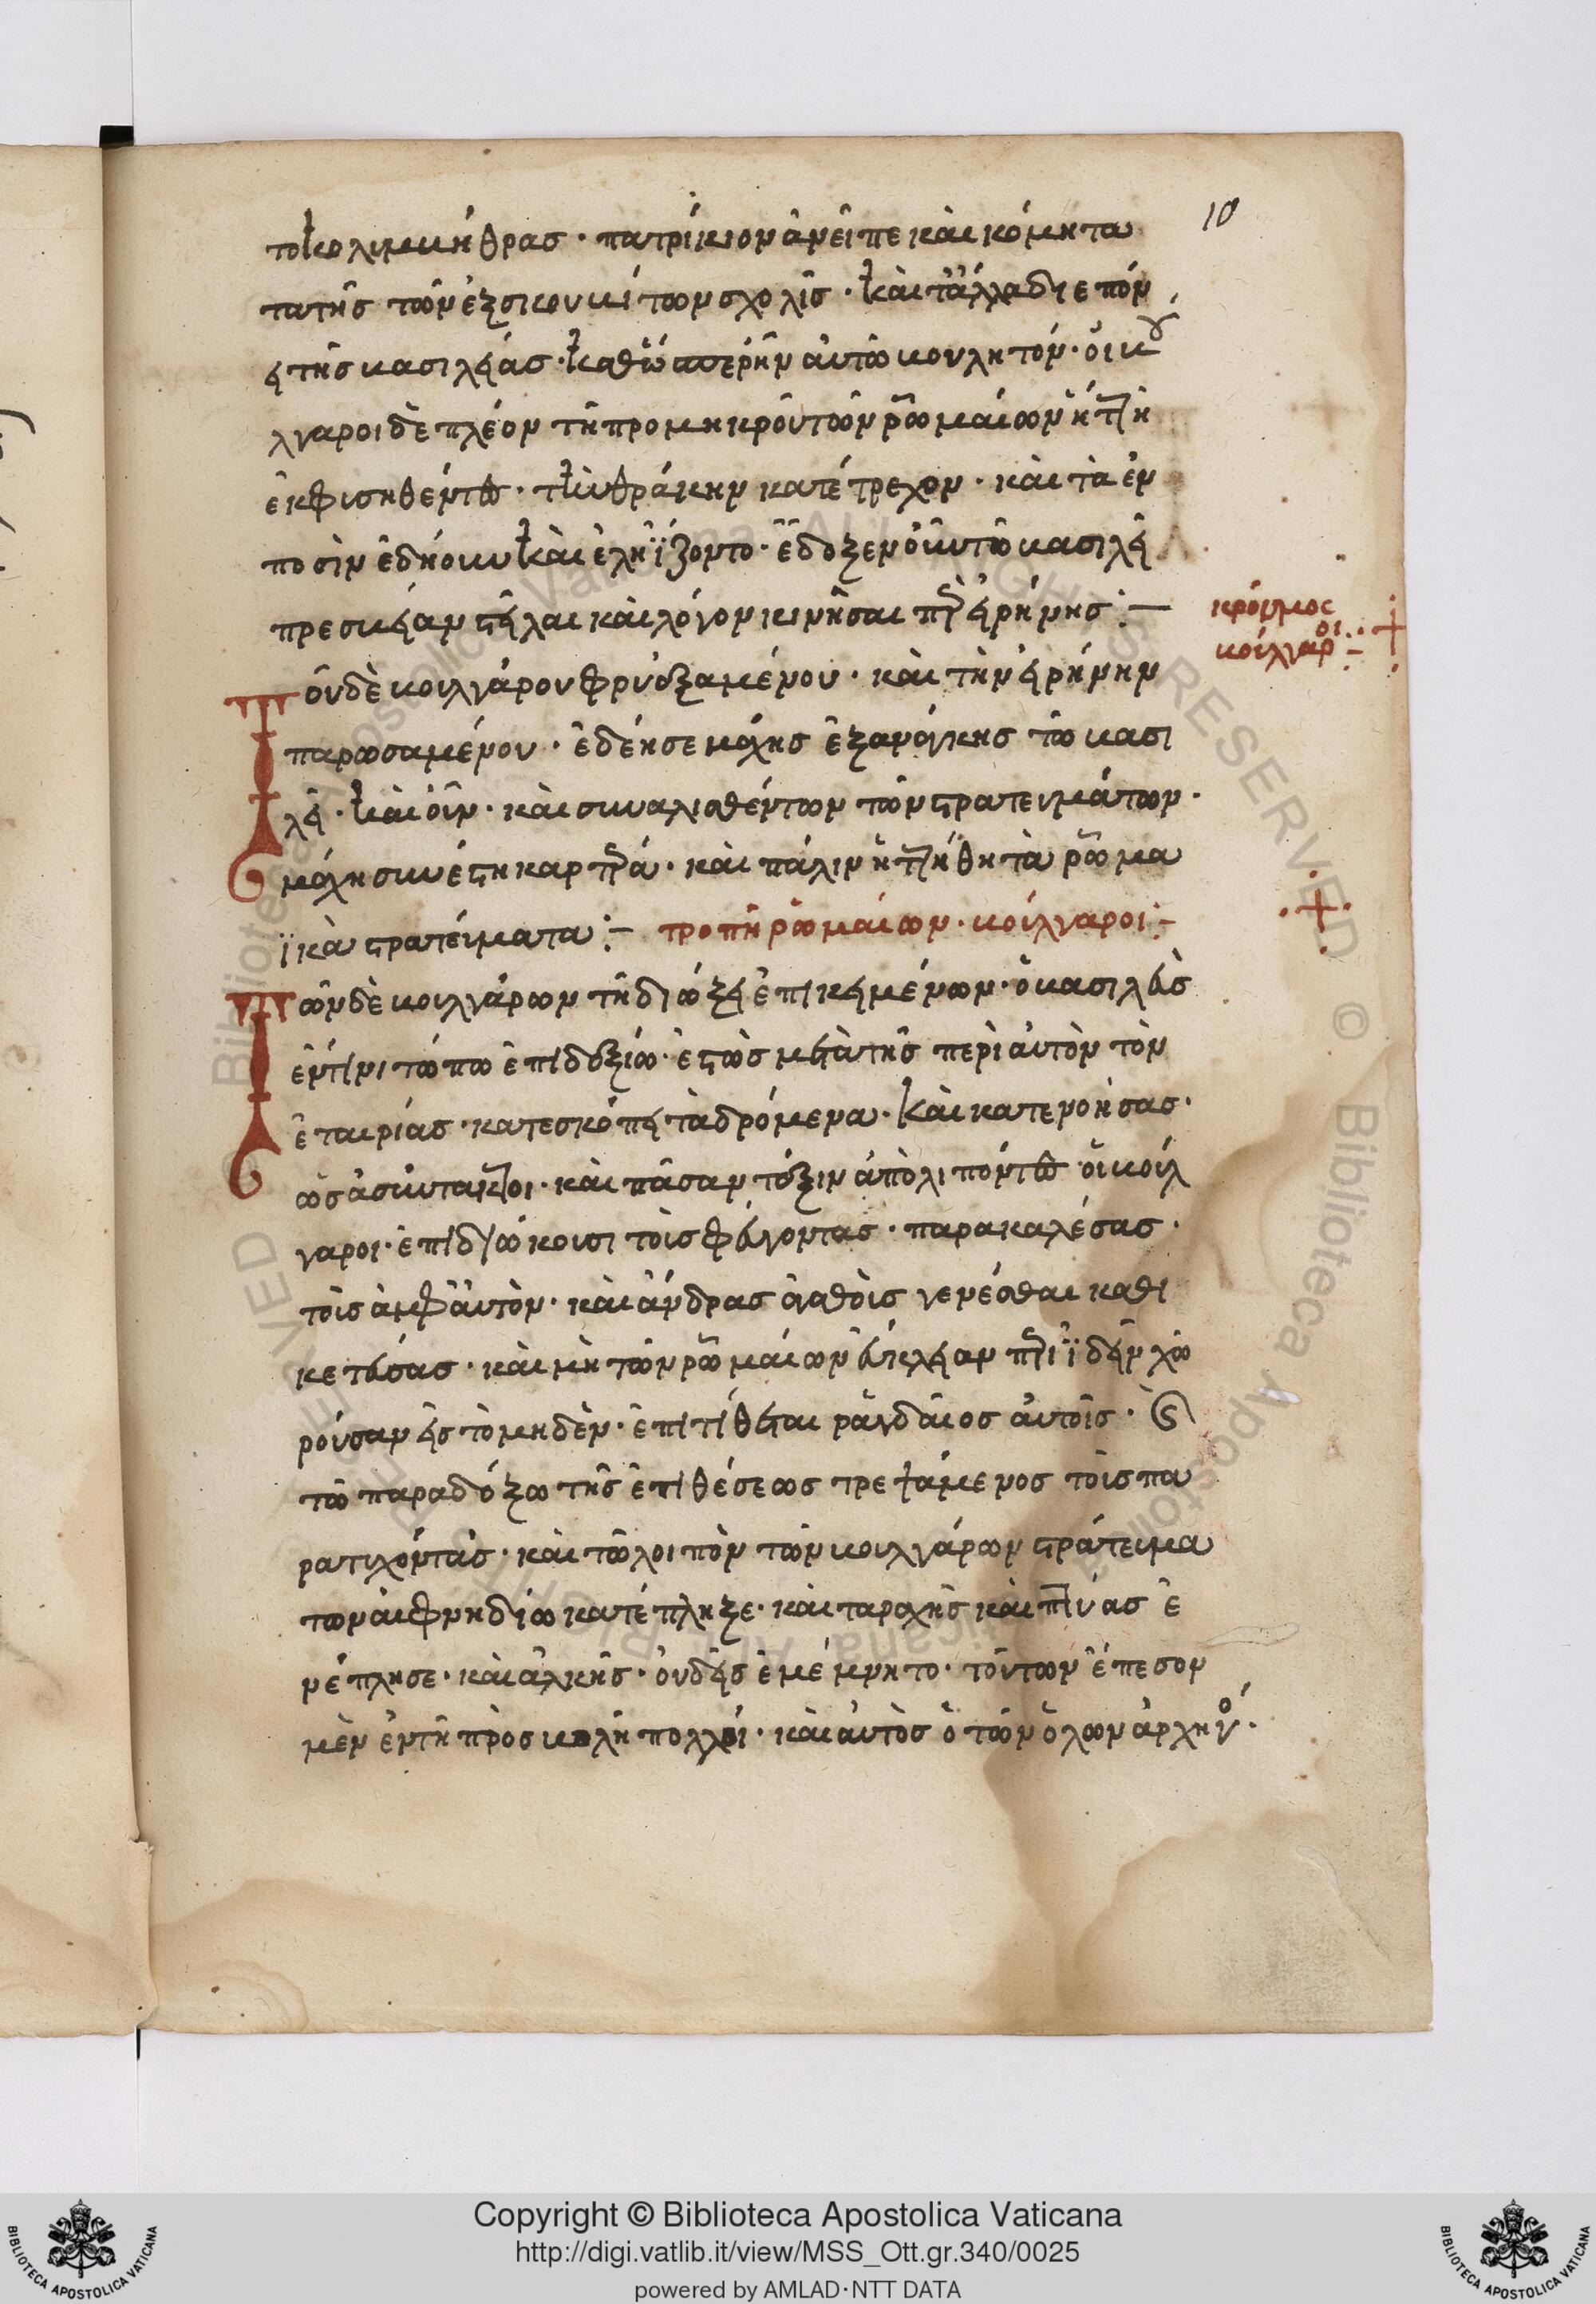 10
τοῦ κολυμβήθρας· πατρίκιον ἀνεῖπε καὶ κόμητα
τα τῆς τῶν ἐξσκουβίτων σχολῆς· καὶ τἄλλα διεπόν
ει τῆς βασιλείας· καθώσπερ ἦν αὐτῶ βουλητόν· οἱ βου
λγαροι δὲ πλέον τῆ προμηκροῦ τῶν ῥωμαίων ἥττη
ἐκφυσηθέντες· τὴν θράκην κατέτρεχον· καὶ τὰ ἐν
ποσὶν ἐδήουν καὶ ἐληΐζοντο· ἔδοξεν οὖν τῶ βασιλεῖ
πρεσβείαν στεῖλαι καὶ λόγον κινῆσαι περὶ εἰρήνης :—
κροῦμος
οι
βούλγαρ :-
Τοῦ δὲ βουλγάρου φρυαξαμένου· καὶ τὴν εἰρήνην
παρωσαμένου· ἐδέησε μάχης ἐξανάγκης τῶ βασι
λεῖ· καὶ οὖν· καὶ συναλισθέντων τῶν στρατευμάτων·
μάχη συνέστη καρτερά· καὶ πάλιν ἡττήθη τὰ ῥωμα
ϊκὰ στρατεύματα :— τροπὴ ῥωμαίων· βούλγαροι :-
Τῶν δὲ βουλγάρων τῆ διώξει ἐπικειμένων· ὁ βασιλεὺς
ἔν τινι τόπω ἐπιδεξίω· ἑστὼς μετὰ τῆς περὶ αὐτὸν τὸν
ἑταιρίας· κατεσκόπει τὰ δρόμενα· καὶ κατενοήσας·
ὡς ἀσύντακτοι· καὶ πᾶσαν τάξιν ἀπολιπόντες οἱ βούλ
γαροι· ἐπιδιώκουσι τοὺς φεύγοντας· παρακαλέσας·
τοὺς ἀμφ' αὐτὸν· καὶ ἄνδρας ἀγαθοὺς γενέσθαι καθι
κετεύσας· καὶ μὴ τῶν ῥωμαίων εὔκλειαν περιϊδεῖν χω
ροῦσαν εἰς τὸ μηδὲν· ἐπιτίθεται ραγδαῖος αὐτοῖς· καὶ
τῶ παραδόξω τῆς ἐπιθέσεως τρεψάμενος τοὺς πα
ρατυχόντας· καὶ τὸ λοιπὸν τῶν βουλγάρων στράτευμα
τῶν αἰφνηδίω κατέπληξε· καὶ ταραχῆς καὶ πτύας ἐ
νέπλησε· καὶ ἀλκῆς· οὐδεὶς ἐμέμνητο· τούτων ἔπεσον
μὲν ἐν τῆ προσβολῆ πολλοί· καὶ αὐτὸς ὁ τῶν ὅλων ἀρχηγός·
Copyright © Biblioteca Apostolica Vaticana
http://digi.vatlib.it/view/MSS_Ott.gr.340/0025
powered by AMLAD·NTT DATA